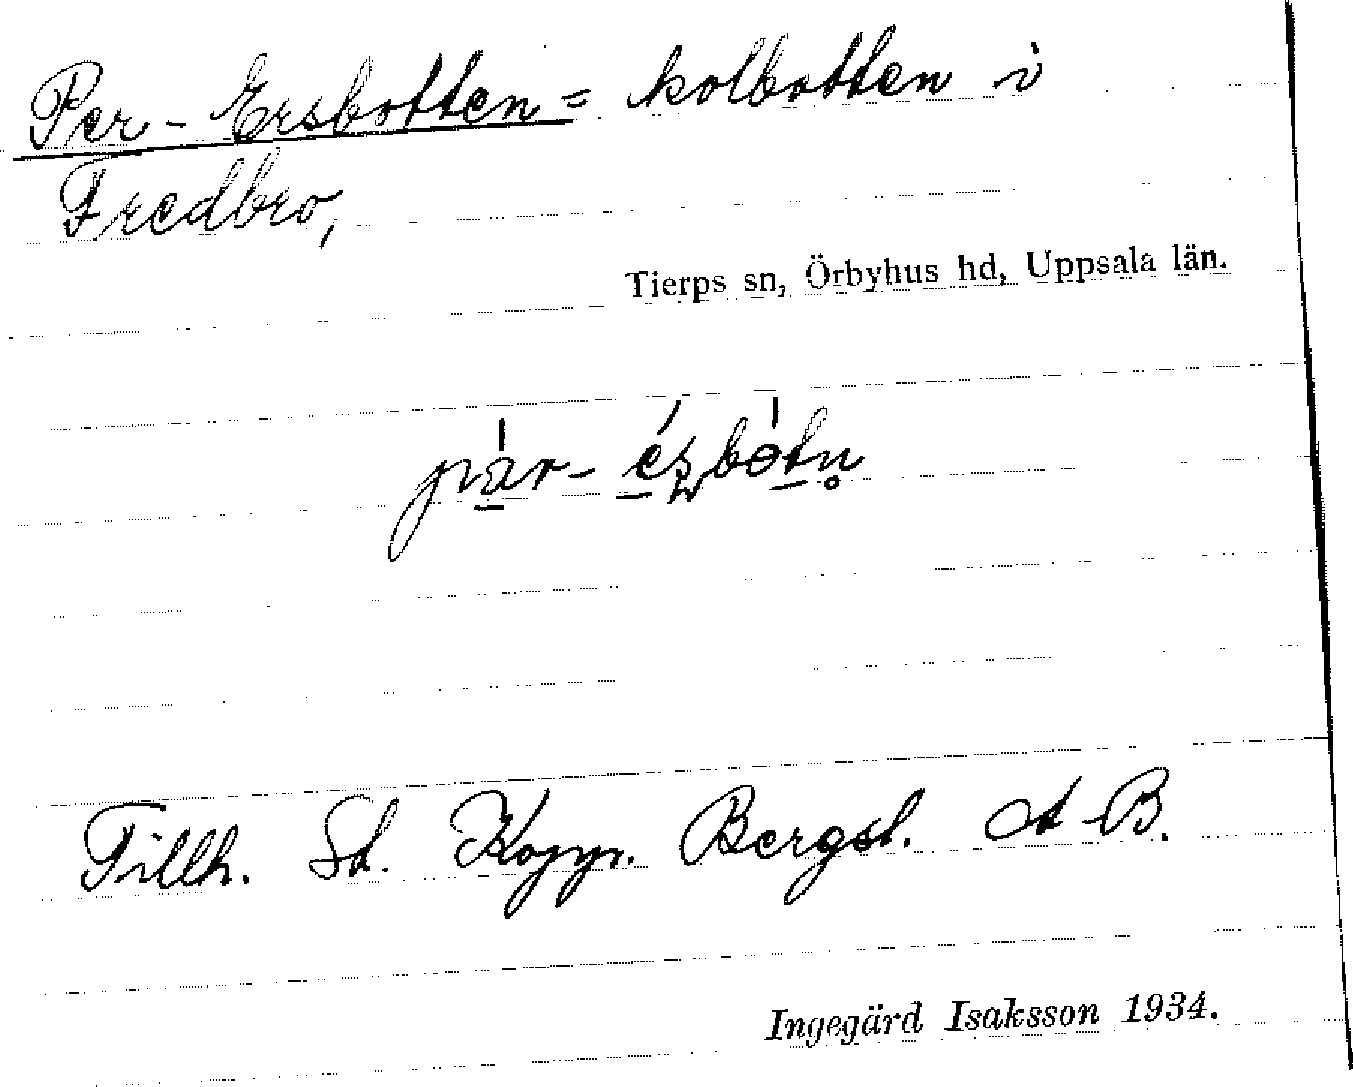 Per-Ersbotten = kolbotten i
Fredbro,
Tierps sn, Örbyhus hd, Uppsala län.
Tillh. St. Kopp. Bergsl. A-B.
Ingegärd Isaksson 1934.